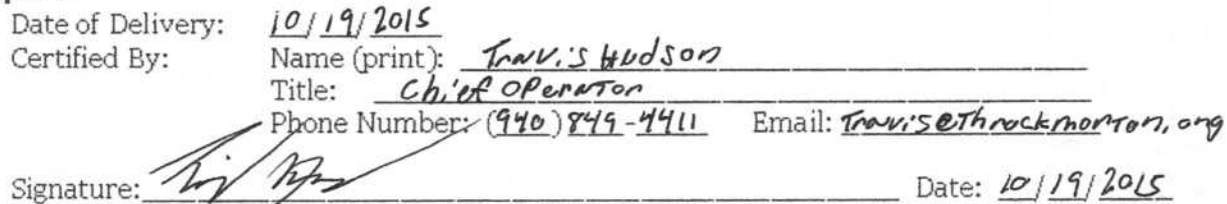 Date of Delivery: 10/19/2015
Certified By: Name (print): Travis Hudson
Title: Chief Operator
Phone Number: (940) 849-4411 Email: Travis@Throckmorton.org
Signature: Date: 10/19/2015